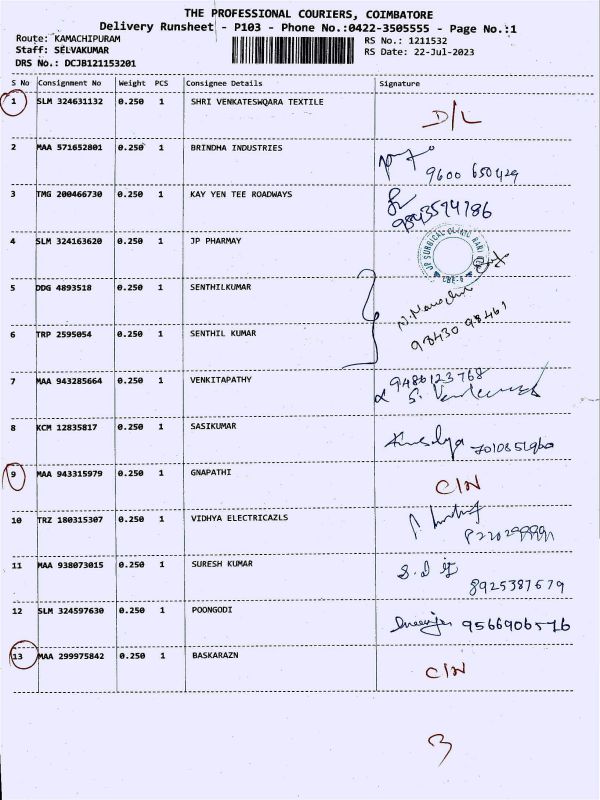 THE PROFESSIONAL COURIERS, COIMBATORE
Delivery Runsheet - P103 - Phone No.:0422-3505555 - Page No.:1
Route: KAMACHIPURAM
RS No.: 1211532
Staff: SELVAKUMAR
RS Date: 22-Jul-2023
DRS No.: DCJB121153201
S No Consignment No Weight PCS Consignee Details Signature
1 SLM 324631132 0.250 1 SHRI VENKATESWQARA TEXTILE
D/L
2 MAA 571652801 0.250 1 BRINDHA INDUSTRIES
9600 650429
3 TMG 200466730 0.250 1 KAY YEN TEE ROADWAYS
4 SLM 324163620 0.250 1 JP PHARMAY
JP SURGICAL CLINIC
5 DDG 4893518 0.250 1 SENTHILKUMAR
6 TRP 2595054 0.250 1 SENTHIL KUMAR
98430 98461
7 MAA 943285664 0.250 1 VENKITAPATHY
9486123768
8 KCM 12835817 0.250 1 SASIKUMAR
9 MAA 943315979 0.250 1 GNAPATHI
C/N
10 TRZ 180315307 0.250 1 VIDHYA ELECTRICAZLS
11 MAA 938073015 0.250 1 SURESH KUMAR
8925387679
12 SLM 324597630 0.250 1 POONGODI
9566906576
13 MAA 299975842 0.250 1 BASKARAZN
C/N
3